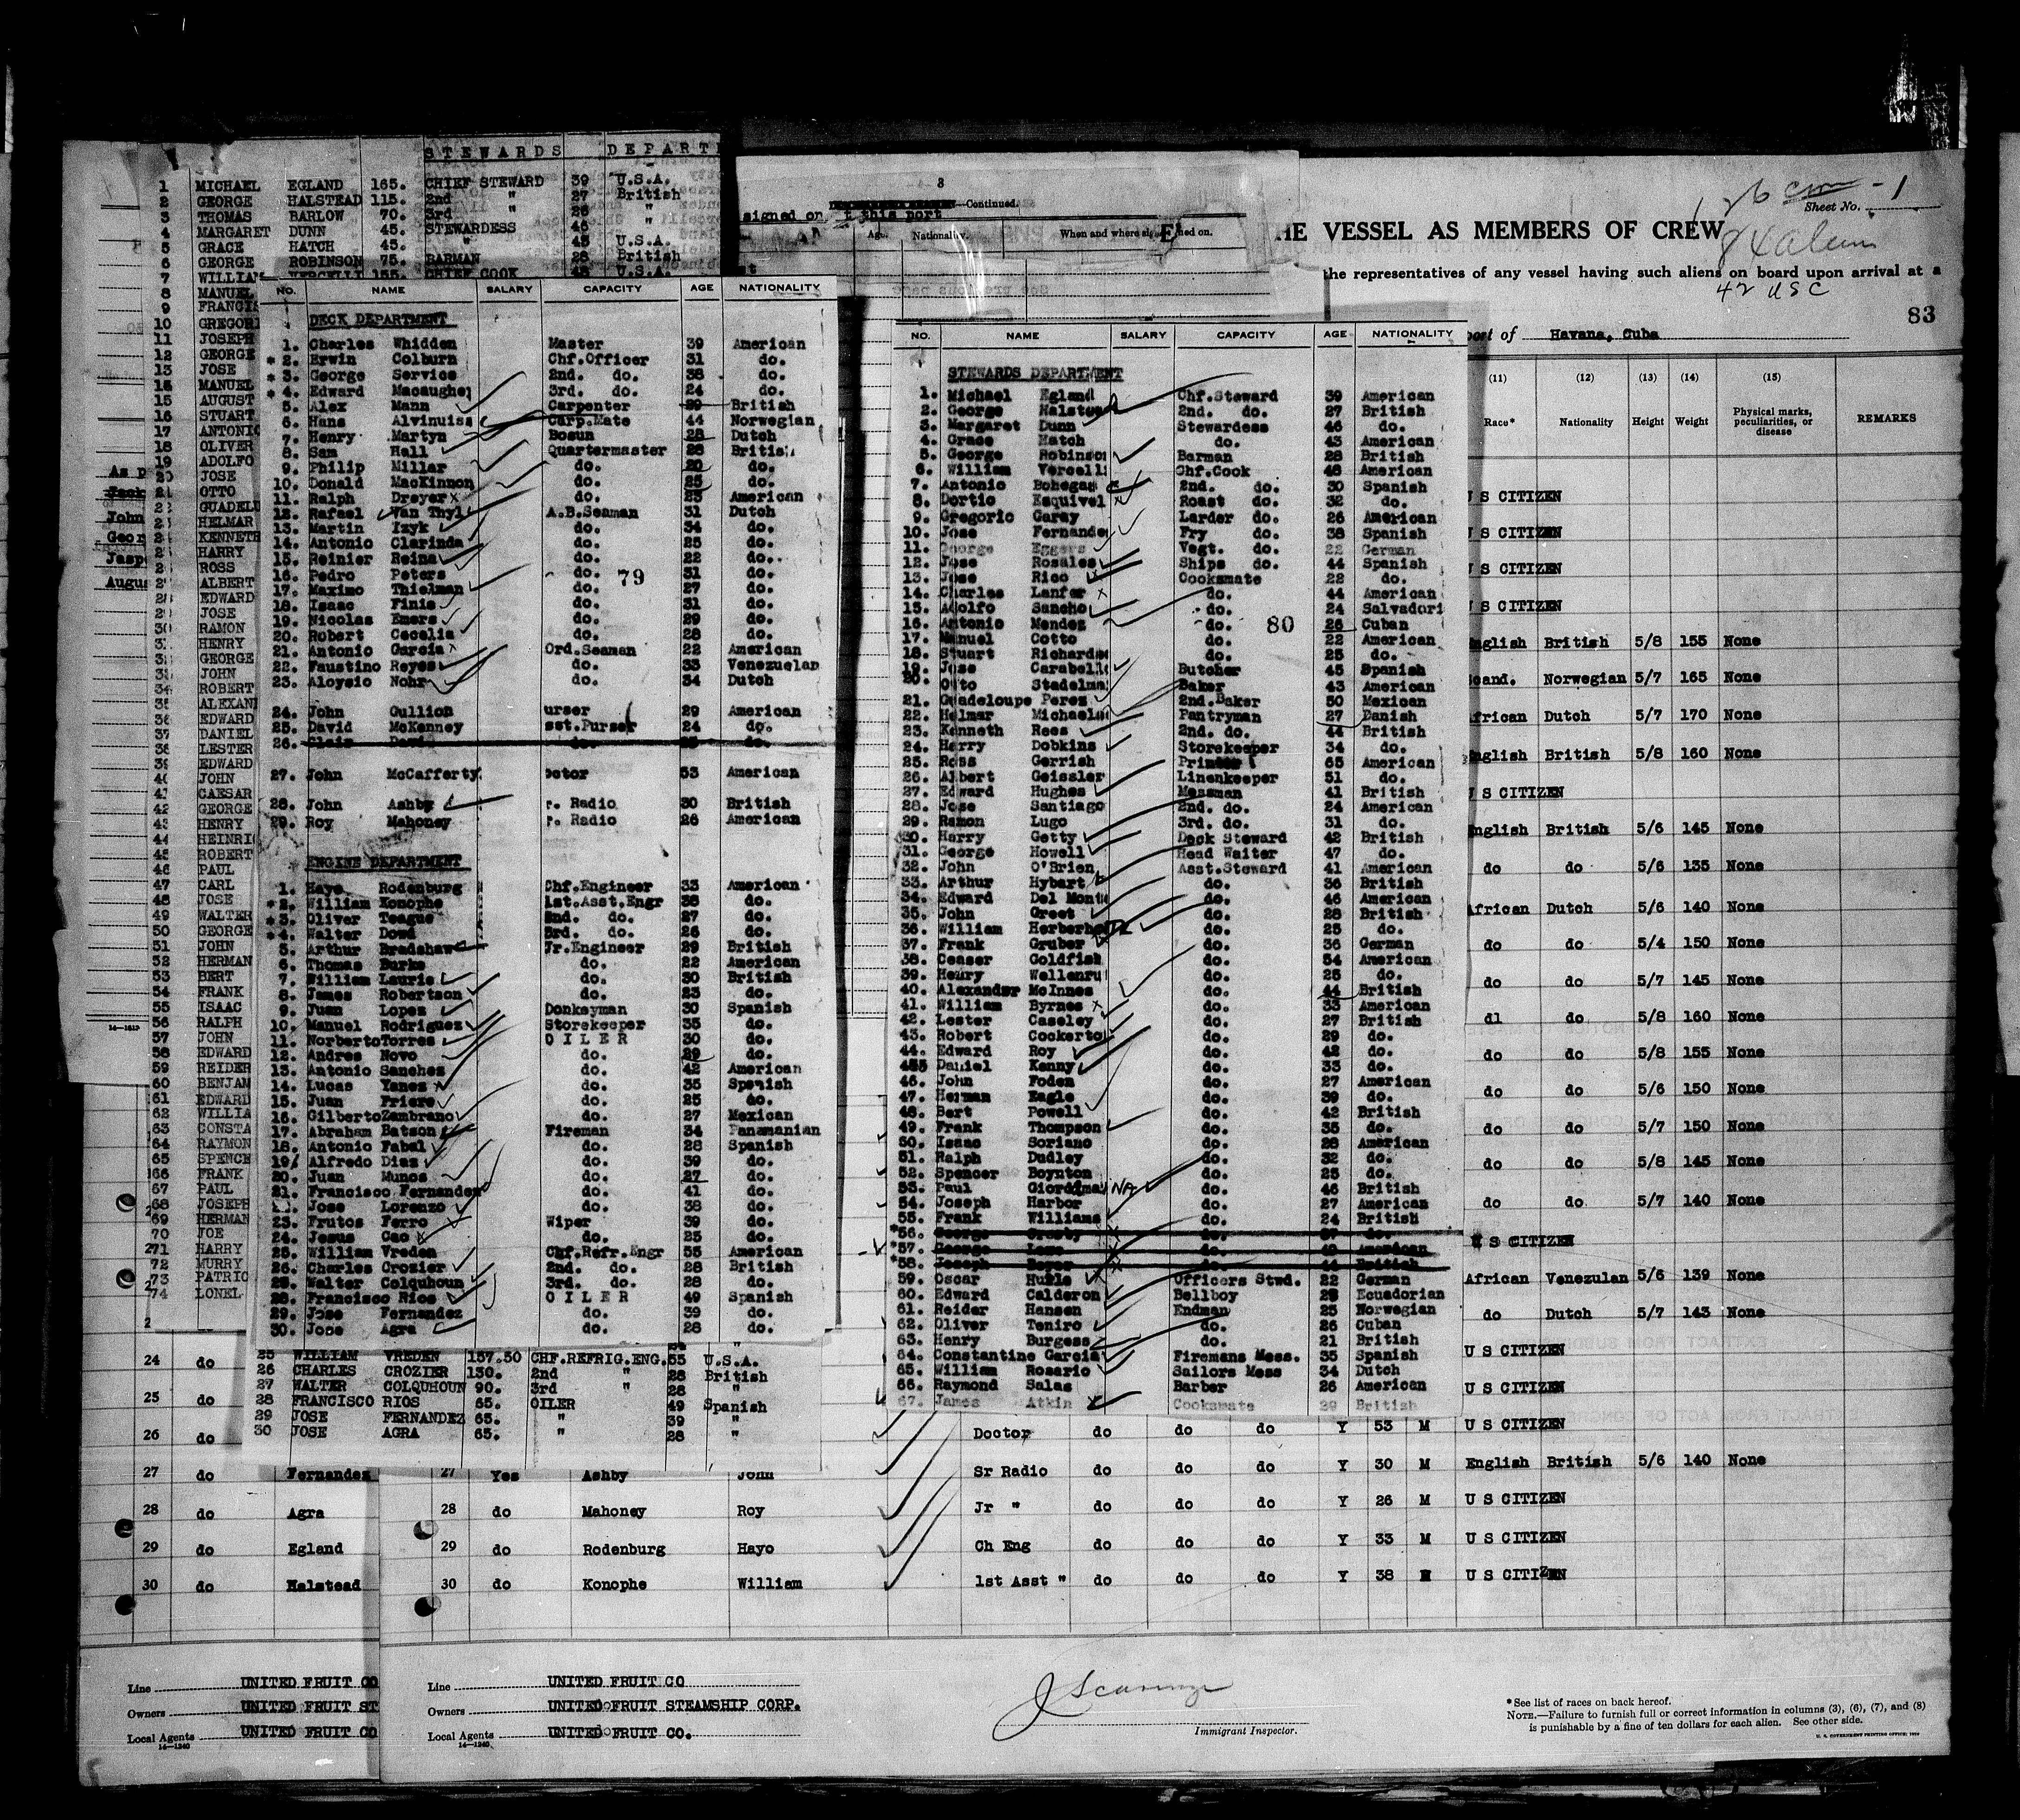 STEWARDS DEPART
1 MICHAEL EGLAND 165. CHIEF STEWARD 39 U.S.A.
2 GEORGE HALSTEAD 115. 2nd " 27 British
3 THOMAS BARLOW 70. 3rd " 26 "
4 MARGARET DUNN 45. STEWARDESS 46 "
5 GRACE HATCH 45. " 43 U.S.A.
6 GEORGE ROBINSON 75. BARMAN 28 British
7 WILLIAM VERCELLI 155. CHIEF COOK 48 U.S.A.
8 MANUEL
9 FRANCIS
10 GREGORI
11 JOSEPH
12 GEORGE
13 JOSE
14 MANUEL
15 AUGUST
16 STUART
17 ANTONIO
18 OLIVER
19 ADOLFO
20 JOSE
21 OTTO
GUADELU
HELMAR
KENNETH
HARRY
ROSS
ALBERT
EDWARD
JOSE
30 RAMON
HENRY
GEORGE
JOHN
34 ROBERT
35 ALEXAN
36 EDWARD
37 DANIEL
38 LESTER
39 EDWARD
40 JOHN
41 CAESAR
42 GEORGE
43 HENRY
44 HEINRI
45 ROBERT
46 PAUL
47 CARL
48 JOSE
49 WALTER
50 GEORGE
51 JOHN
52 HERMAN
53 BERT
54 FRANK
55 ISAAC
56 RALPH
57 JOHN
58 EDWARD
59 REIDER
60 BENJAM
61 EDWARD
62 WILLIA
63 CONSTA
64 RAYMON
65 SPENCE
66 FRANK
67 PAUL
68 JOSEPH
69 HERMAN
70 JOE
71 HARRY
72 MURRY
73 PATRIC
74 LONEL
As p
John
Geor
Jasp
Augus
NO. NAME SALARY CAPACITY AGE NATIONALITY
DECK DEPARTMENT
1. Charles Whidden Master 39 American
* 2. Erwin Colburn Chf.Officer 31 do.
* 3. George Service 2nd. do. 38 do.
* 4. Edward Macaughey 3rd. do. 24 do.
5. Alex Mann Carpenter 29 British
6. Hans Alvinuiss Carp.Mate 44 Norwegian
7. Henry Martyn Bosun 28 Dutch
8. Sam Hall Quartermaster 28 British
9. Philip Millar do. 20 do.
10. Donald MacKinnon do. 25 do.
11. Ralph Dreyer do. 23 American
12. Rafael Van Thyl A.B.Seaman 31 Dutch
13. Martin Izyk do. 34 do.
14. Antonio Clarinda do. 25 do.
15. Reinier Reina do. 22 do.
16. Pedro Peters do. 31 do.
79
17. Maximo Thielman do. 27 do.
18. Isaac Finis do. 31 do.
19. Nicolas Emers do. 29 do.
20. Robert Cecelia do. 28 do.
21. Antonio Garcia Ord.Seaman 22 American
22. Faustino Reyes do. 33 Venezuelan
23. Aloysio Nohr do. 34 Dutch
24. John Gullion urser 29 American
25. David McKenney sst.Purser 24 do.
26.
27. John McCafferty octor 53 American
28. John Ashby r. Radio 30 British
29. Roy Mahoney r. Radio 26 American
ENGINE DEPARTMENT
1. Hayo Rodenburg Chf.Engineer 33 American
*2. William Konophe 1st.Asst.Engr 38 do.
*3. Oliver Teague 2nd. do. 27 do.
*4. Walter Dowd 3rd. do. 26 do.
5. Arthur Bradshaw Jr.Engineer 29 British
6. Thomas Burke do. 22 American
7. William Laurie do. 30 British
8. James Robertson do. 23 do.
9. Juan Lopez Donkeyman 30 Spanish
10. Manuel Rodriguez Storekeeper 35 do.
11. Norberto Torres OILER 30 do.
12. Andres Novo do. 29 do.
13. Antonio Sanchez do. 42 American
14. Lucas Yanes do. 35 Spanish
15. Juan Friere do. 25 do.
16. Gilberto Zambrano do. 27 Mexican
17. Abraham Batson Fireman 34 Panamanian
18. Antonio Fabal do. 28 Spanish
19. Alfredo Diaz do. 39 do.
20. Juan Munos do. 27 do.
21. Francisco Fernandez do. 41 do.
Jose Lorenzo do. 38 do.
23. Frutos Ferro Wiper 39 do.
24. Jesus Cao do. 25 do.
25. William Vreden Chf.Refr.Engr 55 American
26. Charles Crozier 2nd. do. 28 British
Walter Colquhoun 3rd. do. 28 do.
28. Francisco Rios OILER 49 Spanish
29. Jose Fernandez do. 39 do.
30. Jose Agra do. 28 do.
25 WILLIAM VREDEN 157.50 CHF.REFRIG.ENG. 55 U.S.A.
26 CHARLES CROZIER 130. 2nd " 28 British
27 WALTER COLQUHOUN 90. 3rd " 28 "
28 FRANCISCO RIOS 65. OILER 49 Spanish
29 JOSE FERNANDEZ 65. " 39 "
30 JOSE AGRA 65. " 28 "
3
—Continued.
signed on t this port
Age Nationality When and where signed on.
NO. NAME SALARY CAPACITY AGE NATIONALITY
STEWARDS DEPARTMENT
1. Michael Egland Chf.Steward 39 American
2. George Halstead 2nd. do. 27 British
3. Margaret Dunn Stewardess 46 do.
4. Grace Hatch do. 43 American
5. George Robinson Barman 28 British
6. William Vercelli Chf.Cook 48 American
7. Antonio Bohegas 2nd. do. 30 Spanish
8. Dortio Esquivel Roast do. 32 do.
9. Gregorio Garay Larder do. 26 American
10. Jose Fernandez Fry do. 38 Spanish
11. George Eggers Vegt. do. 22 German
12. Jose Rosales Ships do. 44 Spanish
13. Jose Rico Cooksmate 22 do.
14. Charles Lanfer do. 44 American
15. Adolfo Sancho do. 24 Salvadori
16. Antonio Mendez do. 26 Cuban
80
17. Manuel Cotto do. 22 American
18. Stuart Richards do. 25 do.
19. Jose Carabello Butcher 45 Spanish
20. Otto Stadelma Baker 43 American
21. Guadeloupe Perez 2nd.Baker 50 Mexican
22. Helmar Michaels Pantryman 27 Danish
23. Kenneth Rees 2nd. do. 44 British
24. Harry Dobkins Storekeeper 34 do.
25. Ross Gerrish Printer 65 American
26. Albert Geissler Linenkeeper 51 do.
27. Edward Hughes Messman 41 British
28. Jose Santiago 2nd. do. 24 American
29. Ramon Lugo 3rd. do. 31 do.
30. Harry Getty Deck Steward 42 British
31. George Howell Head Waiter 47 do.
32. John O'Brien Asst.Steward 41 American
33. Arthur Hybart do. 36 British
34. Edward Del Monte do. 46 American
35. John Greet do. 28 British
36. William Herberho do. 25 do.
37. Frank Gruber do. 36 German
38. Ceaser Goldfish do. 54 American
39. Henry Wellenru do. 25 do.
40. Alexander McInnes do. 44 British
41. William Byrnes do. 33 American
42. Lester Caseley do. 27 British
43. Robert Cockerto do. 29 do.
44. Edward Roy do. 42 do.
Daniel Kenny do. 33 do.
46. John Foden do. 27 American
47. Herman Eagle do. 39 do.
48. Bert Powell do. 42 British
49. Frank Thompson do. 35 do.
50. Isaac Soriano do. 28 American
51. Ralph Dudley do. 32 do.
52. Spencer Boynton do. 25 do.
53. Paul Giordma NA do. 46 British
54. Joseph Harbor do. 27 American
55. Frank Williams do. 24 British
*56. George
*57. George Lowe do. American
*58. Joseph do. 44 British
59. Oscar Officers Stwd. 22 German
60. Edward Calderon Bellboy Ecuadorian
61. Reider Hansen Endman 25 Norwegian
62. Oliver Teniro do. 26 Cuban
63. Henry Burgess do. 21 British
64. Constantine Garcia Firemans Mess. 35 Spanish
65. William Rosario Sailors Mess 34 Dutch
66. Raymond Salas Barber 26 American
67. James Atkin Cooksmate 29 British
126 crew - 1
Sheet No.
HE VESSEL AS MEMBERS OF CREW
84 aliens
the representatives of any vessel having such aliens on board upon arrival at a
42 USC
83
port of Havana, Cuba
(11) (12) (13) (14) (15)
Race* Nationality Height Weight Physical marks, peculiarities, or disease REMARKS
U S CITIZEN
U S CITIZEN
U S CITIZEN
U S CITIZEN
English British 5/8 155 None
Scand. Norwegian 5/7 165 None
African Dutch 5/7 170 None
English British 5/8 160 None
U S CITIZEN
English British 5/6 145 None
do do 5/6 135 None
African Dutch 5/6 140 None
do do 5/4 150 None
do do 5/7 145 None
dl do 5/8 160 None
do do 5/8 155 None
do do 5/6 150 None
do do 5/7 150 None
do do 5/8 145 None
do do 5/7 140 None
U S CITIZEN
African Venezulan 5/6 139 None
do Dutch 5/7 143 None
U S CITIZEN
U S CITIZEN
24 do
25 do
26 do Doctor do do do Y 53 M U S CITIZEN
27 do Fernandez 27 Yes Ashby John Sr Radio do do do Y 30 M English British 5/6 140 None
28 do Agra 28 do Mahoney Roy Jr " do do do Y 26 M U S CITIZEN
29 do Egland 29 do Rodenburg Hayo Ch Eng do do do Y 33 M U S CITIZEN
30 do Halstead 30 do Konophe William 1st Asst " do do do Y 38 M U S CITIZEN
Line UNITED FRUIT CO
Owners UNITED FRUIT ST
Local Agents UNITED FRUIT CO
14—1240
Line UNITED FRUIT CO
Owners UNITED FRUIT STEAMSHIP CORP.
Local Agents UNITED FRUIT CO.
14—1240
Immigrant Inspector.
*See list of races on back hereof.
NOTE.—Failure to furnish full or correct information in columns (3), (6), (7), and (8)
is punishable by a fine of ten dollars for each alien. See other side.
U. S. GOVERNMENT PRINTING OFFICE